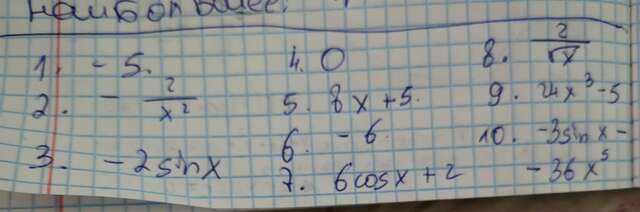 наибольшее.
1. -5.
2. - 2/x²
3. -2sinx
4. 0
5. 8x+5.
6. -6.
7. 6cosx+2
8. 2/√x
9. 24x³-5
10. -3sinx-
-36x⁵